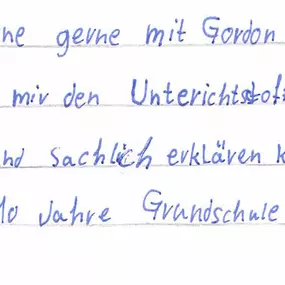 ne gerne mit Gordon
mir den Unterichtsstof
nd sachlich erklären k
10 Jahre Grundschule